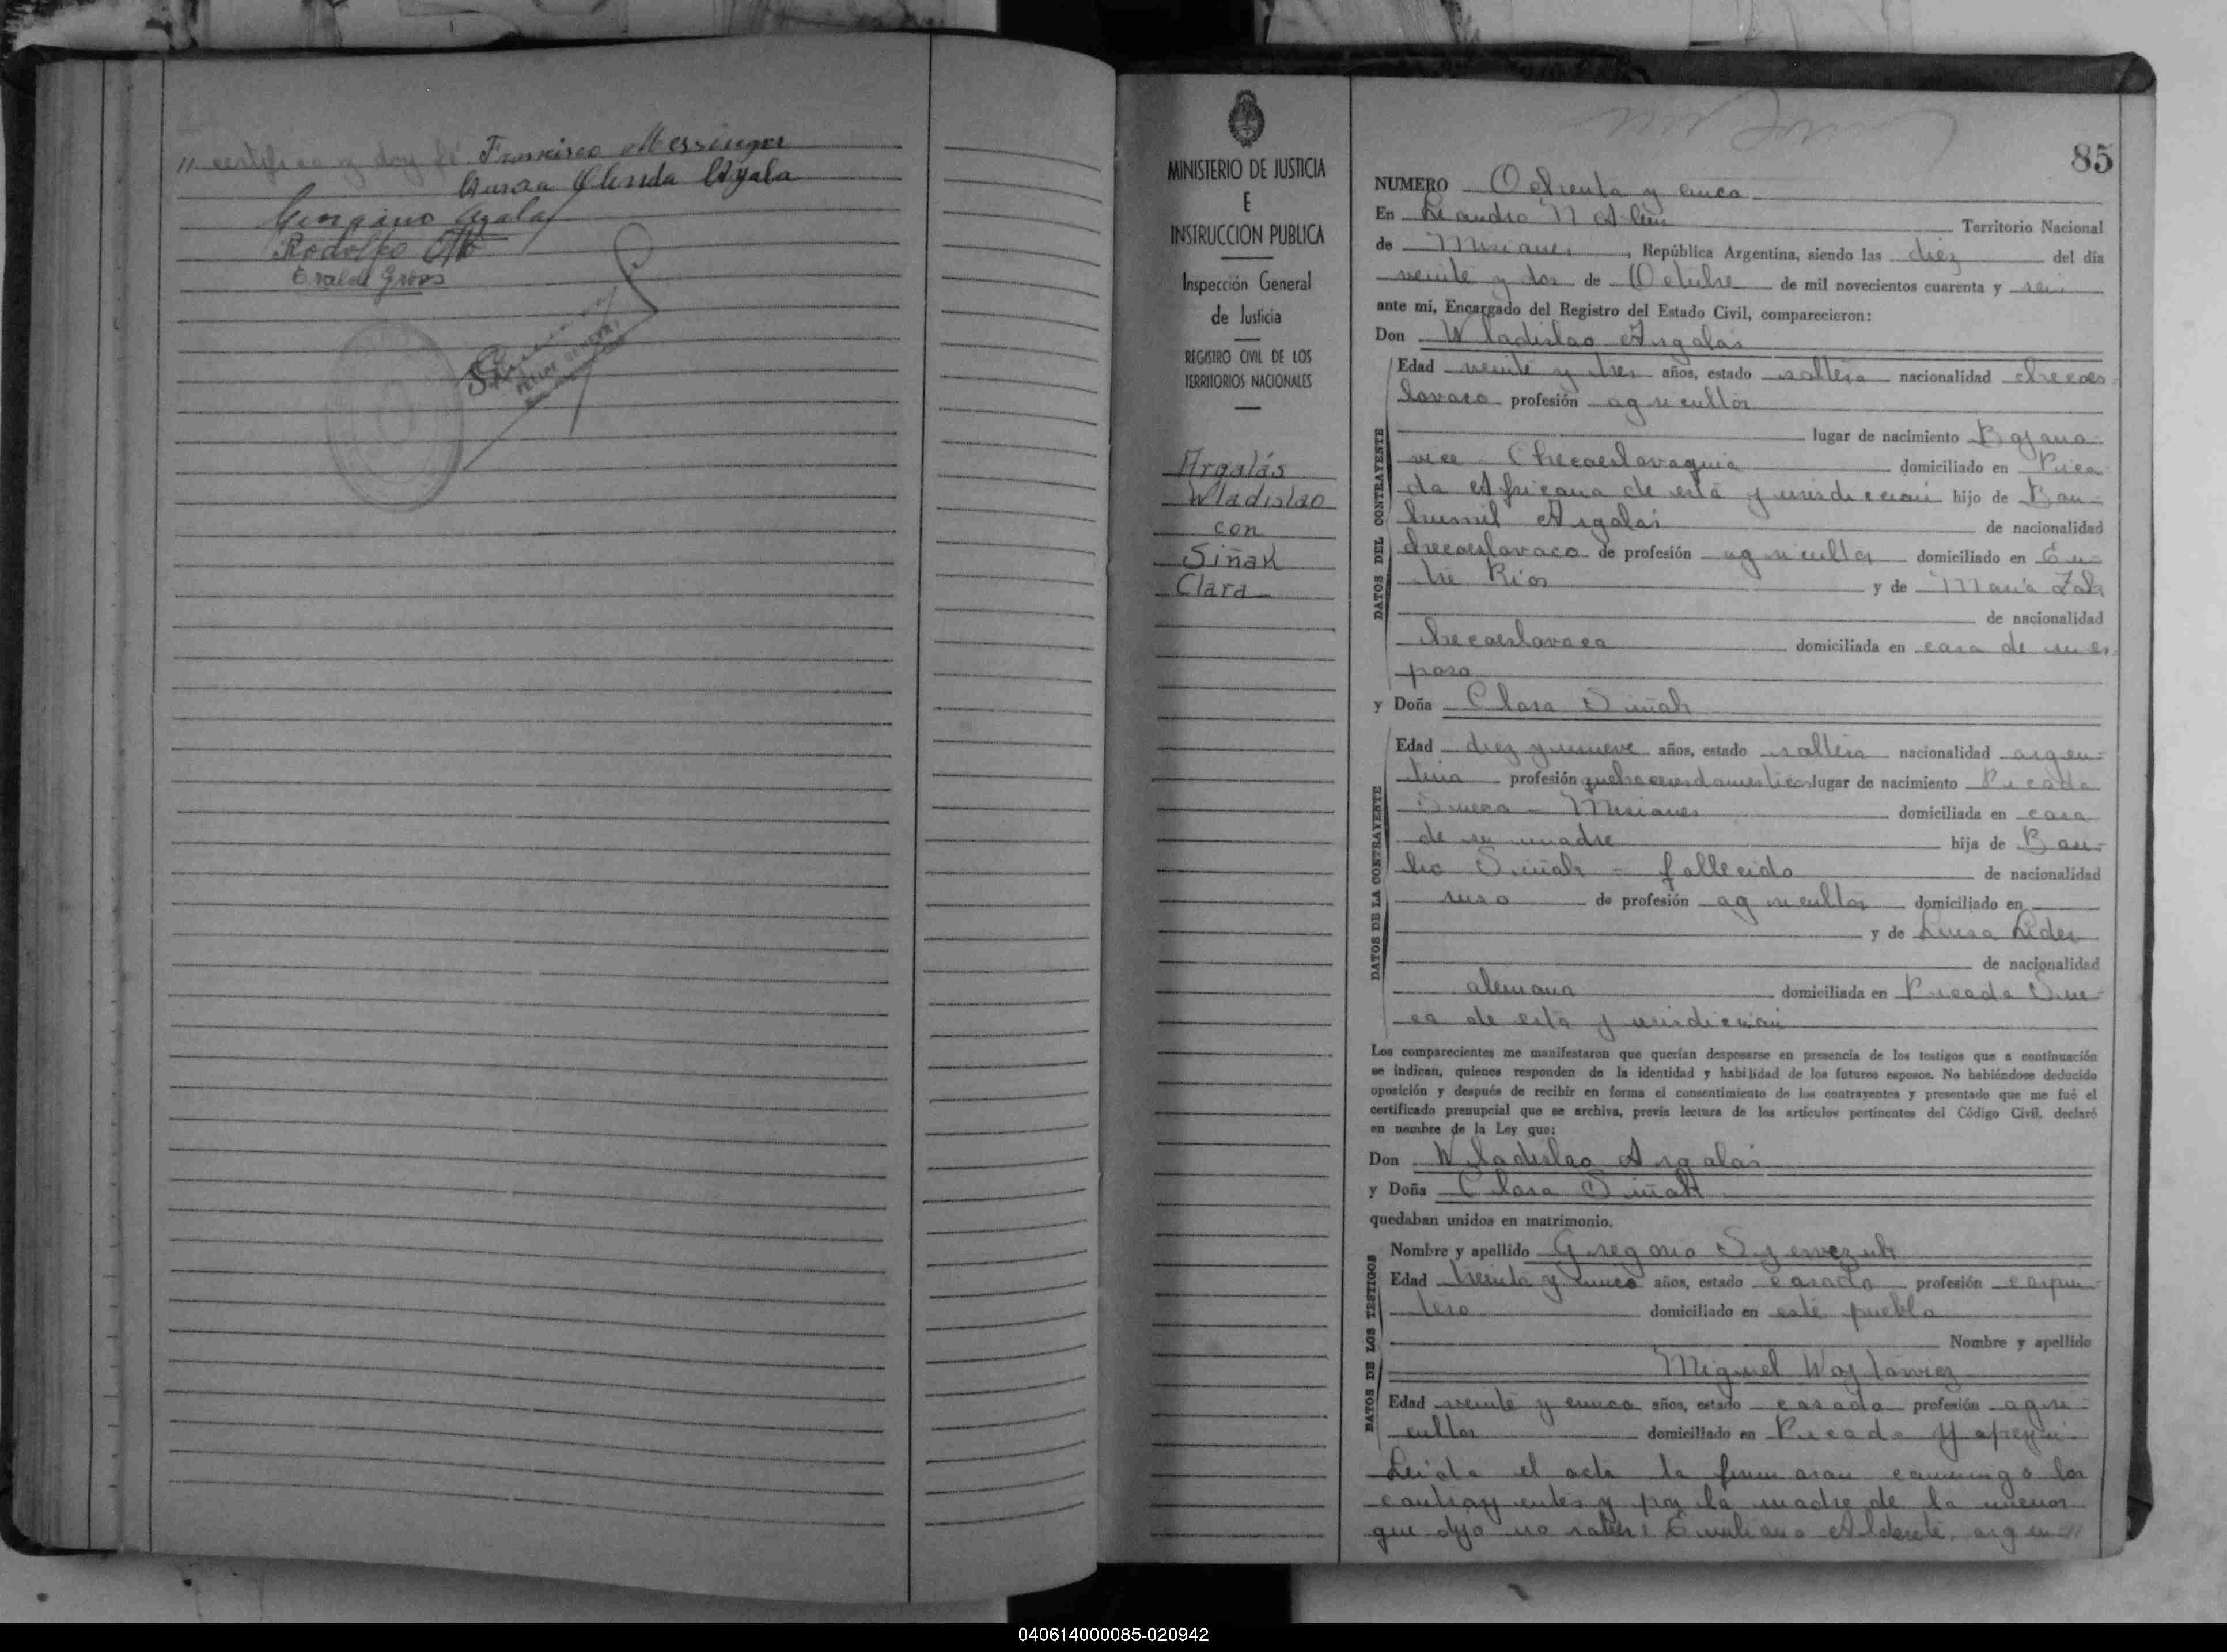 " certifico y doy fé. Francisco Messinger
Olinda Ayala
Ayala
Rodolfo Otto
Evaldo Gross
MINISTERIO DE JUSTICIA
E
INSTRUCCION PUBLICA
Inspección General
de Justicia
REGISTRO CIVIL DE LOS
TERRITORIOS NACIONALES
Argalás
Wladislao
con
Siñak
Clara
85
NUMERO Ochenta y cinco
En Leandro N Alem Territorio Nacional
de Misiones, República Argentina, siendo las diez del día
veinte y dos de Octubre de mil novecientos cuarenta y seis
ante mí, Encargado del Registro del Estado Civil, comparecieron:
Don Wladislao Argalás
DATOS DEL CONTRAYENTE
Edad veinte y tres años, estado soltero nacionalidad checoes-
lovaco profesión agricultor
lugar de nacimiento
Checoeslovaquia domiciliado en Pica-
da Africana de esta jurisdiccion hijo de
Argalás de nacionalidad
checoeslovaco de profesión agricultor domiciliado en En-
tre Ríos y de María
de nacionalidad
checoeslovaca domiciliada en casa de su es-
poso
y Doña Clara Siñak
DATOS DE LA CONTRAYENTE
Edad diez y nueve años, estado soltera nacionalidad argen-
tina profesión quehaceres domesticos lugar de nacimiento Picada
Sueca - Misiones domiciliada en casa
de su madre hija de
Siñak - fallecido de nacionalidad
ruso de profesión agricultor domiciliado en
y de Luisa Lider
de nacionalidad
alemana domiciliada en Picada Sue-
ca de esta jurisdiccion
Los comparecientes me manifestaron que querían desposarse en presencia de los testigos que a continuación
se indican, quienes responden de la identidad y habilidad de los futuros esposos. No habiéndose deducido
oposición y después de recibir en forma el consentimiento de los contrayentes y presentado que me fué el
certificado prenupcial que se archiva, previa lectura de los artículos pertinentes del Código Civil, declaré
en nombre de la Ley que:
Don Wladislao Argalás
y Doña Clara Siñak
quedaban unidos en matrimonio.
DATOS DE LOS TESTIGOS
Nombre y apellido Gregorio Szewczuk
Edad treinta y cinco años, estado casado profesión carpin-
tero domiciliado en este pueblo
Nombre y apellido
Miguel Wojtowicz
Edad veinte y cinco años, estado casado profesión agri-
cultor domiciliado en Picada Yapeyú.
Leida el acta la firmaran conmigo los
contrayentes y por la madre de la menor
que dijo no saber; Emiliano Alderete, argen-"
040614000085-020942